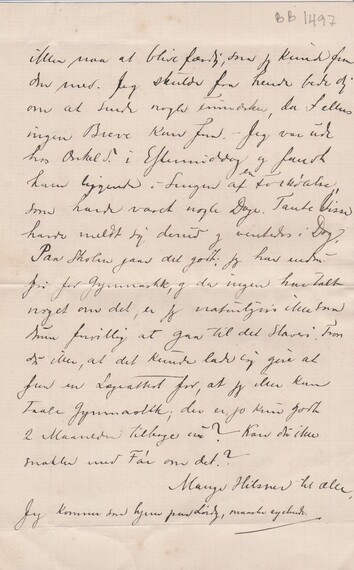 BB 1497
ikke naa at blive færdig, saa jeg kunde faa
den med. Jeg skulde fra hende bede dig
om at sende nogle, da I ellers
ingen Breve kan faa. – Jeg var ude
hos Onkel S. i Eftermiddag og fandt
ham liggende i Sengen af en Forkølelse,
som havde varet nogle Dage. Tante
havde meldt sig derud og ventedes i Dag.
Paa Skolen gaar det godt; jeg har endnu
fri for Gymnastik, og da ingen har talt
noget om det, er jeg naturligvis ikke saa
dum frivillig at gaa til det Slaveri. Tror
du ikke, at det kunde lade sig gøre at
faa en Lægeattest for, at jeg ikke kan
taale Gymnastik; der er jo kun godt
2 Maaneder tilbage nu? Kan du ikke
snakke med Fär om det?
Mange Hilsner til alle,
Jeg kommer saa hjem paa Lørdag, maaske